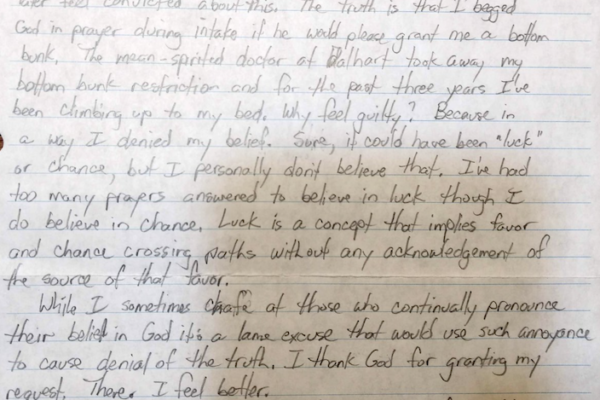 later feel convicted about this. The truth is that I begged
God in prayer during intake if he would please grant me a bottom
bunk. The mean-spirited doctor at Dalhart took away my
bottom bunk restriction and for the past three years I've
been climbing up to my bed. Why feel guilty? Because in
a way I denied my belief. Sure, it could have been "luck"
or chance, but I personally don't believe that. I've had
too many prayers answered to believe in luck though I
do believe in chance. Luck is a concept that implies favor
and chance crossing paths without any acknowledgement of
the source of that favor.
While I sometimes chafe at those who continually pronounce
their belief in God it's a lame excuse that would use such annoyance
to cause denial of the truth. I thank God for granting my
request. There. I feel better.